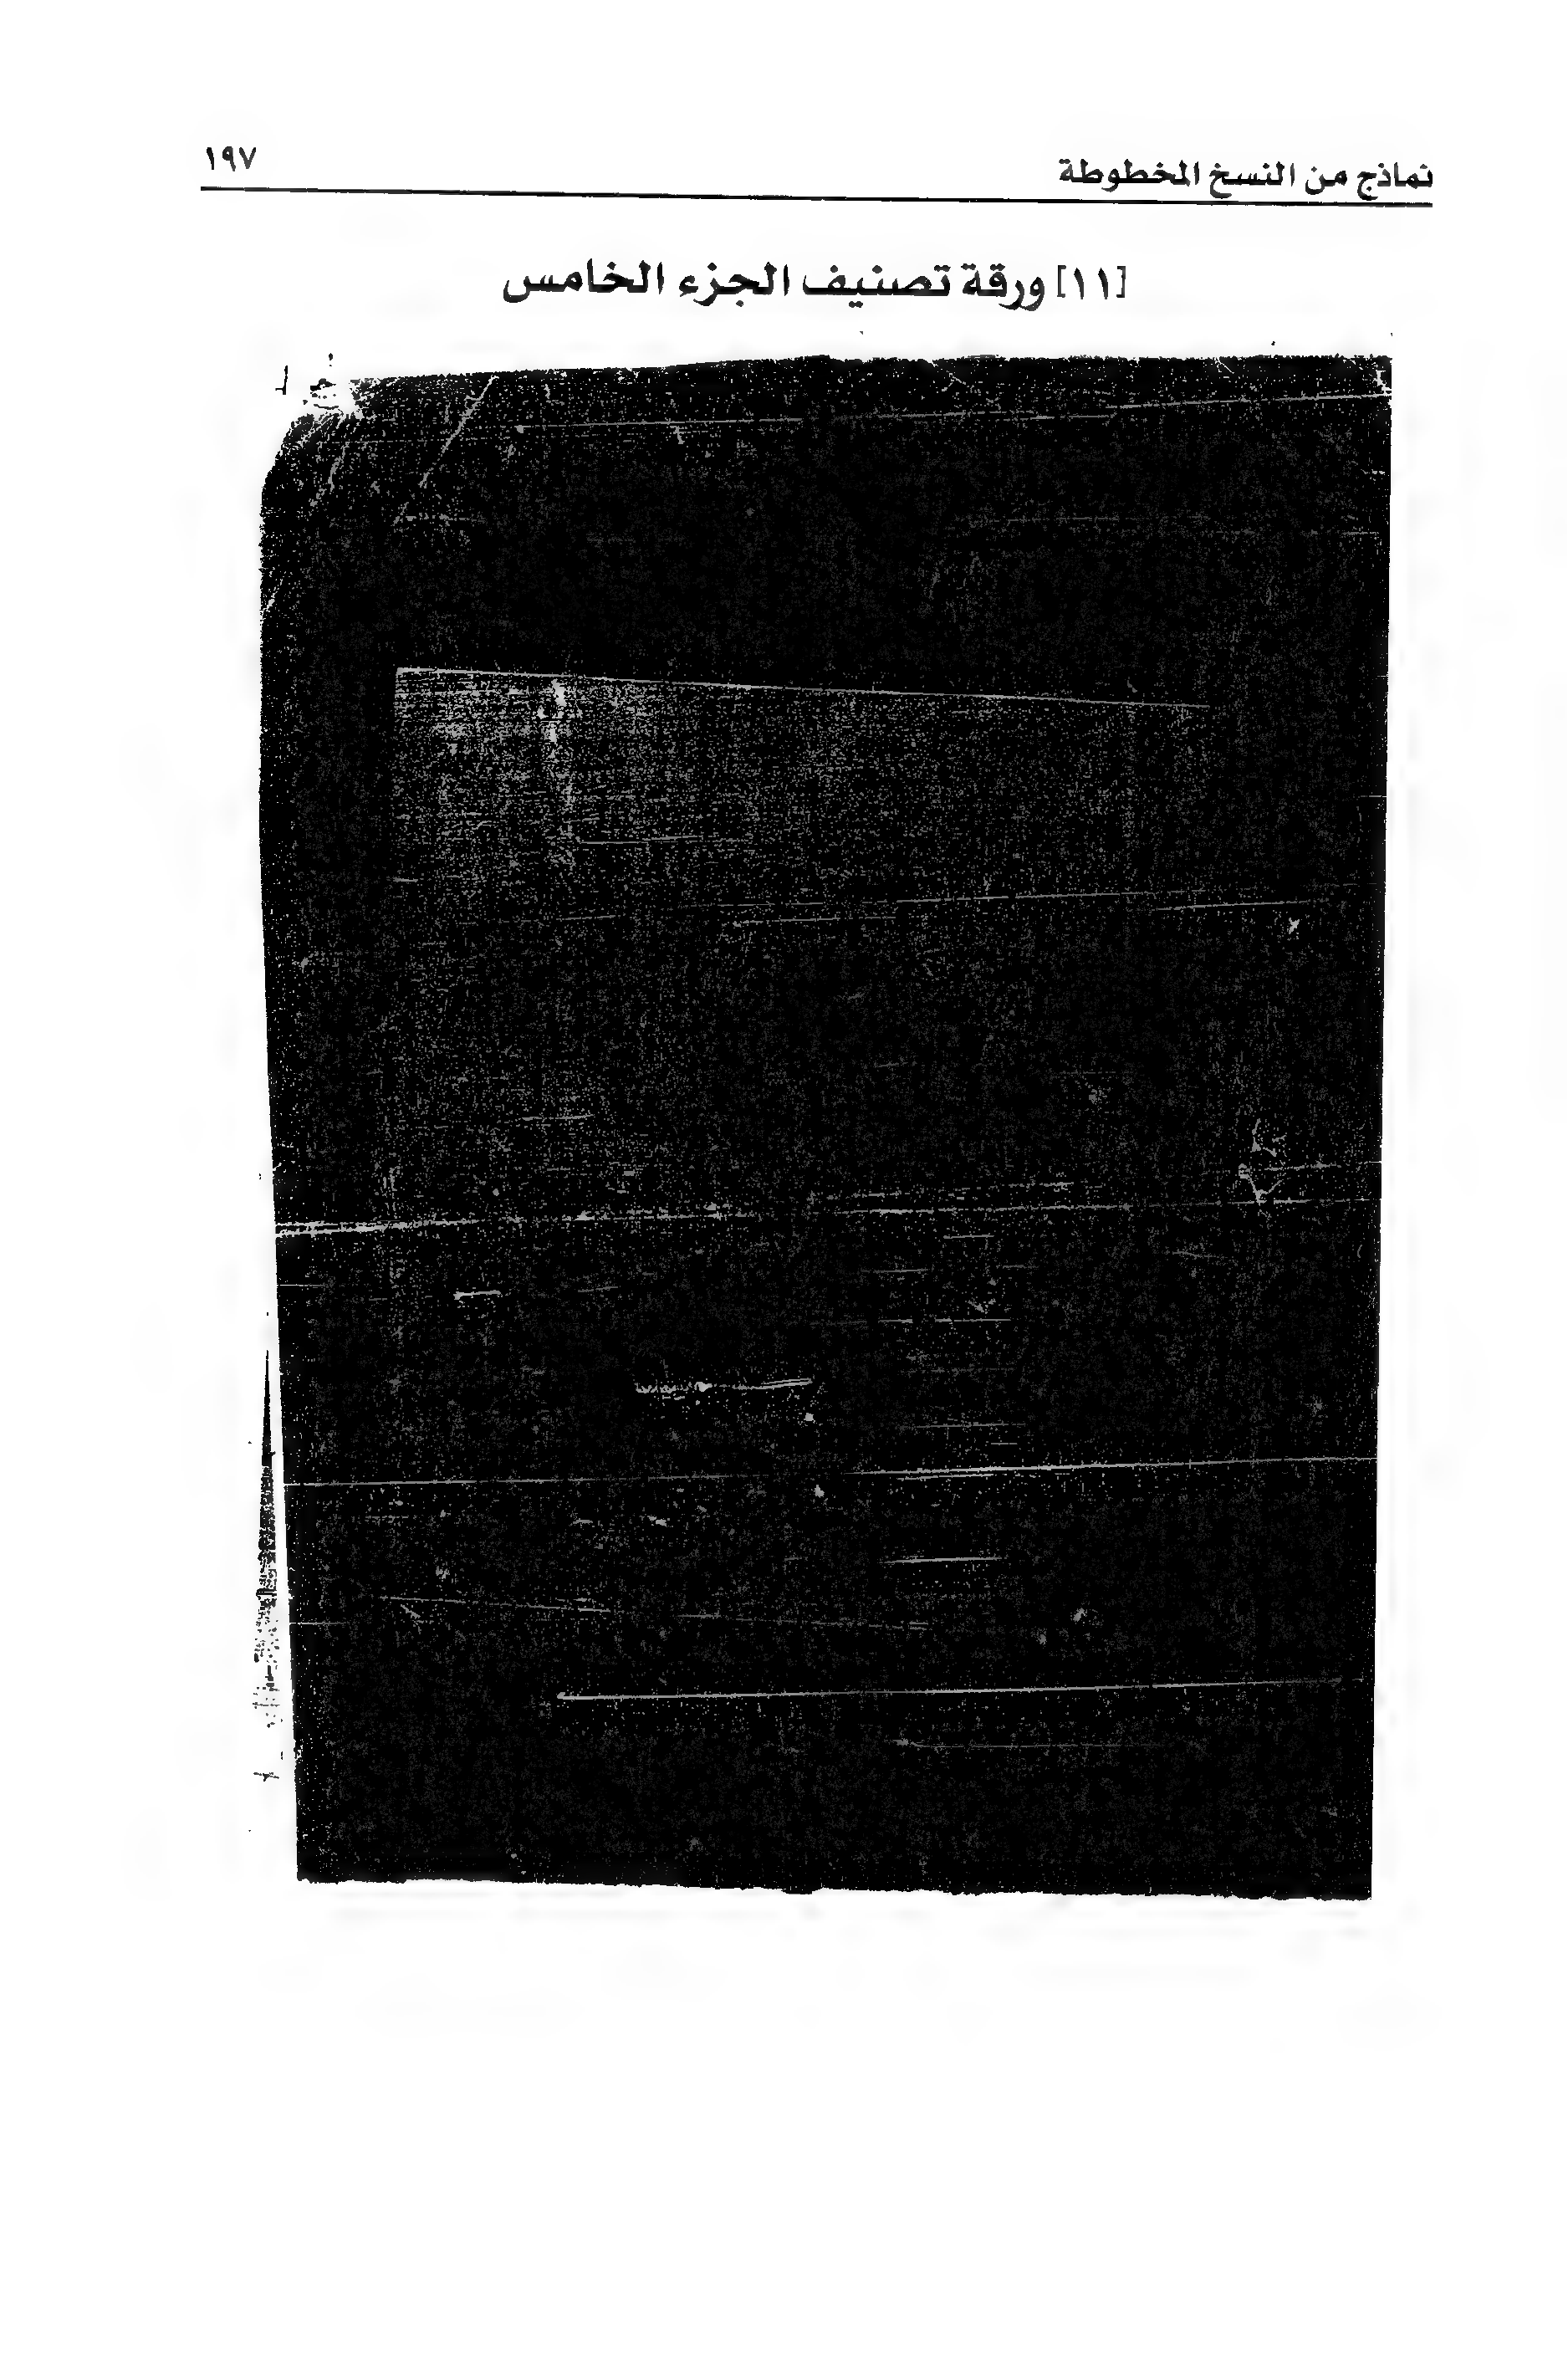 نماذج من النسخ المخطوطة
١٩٧
[١١] ورقة تصنيف الجزء الخامس